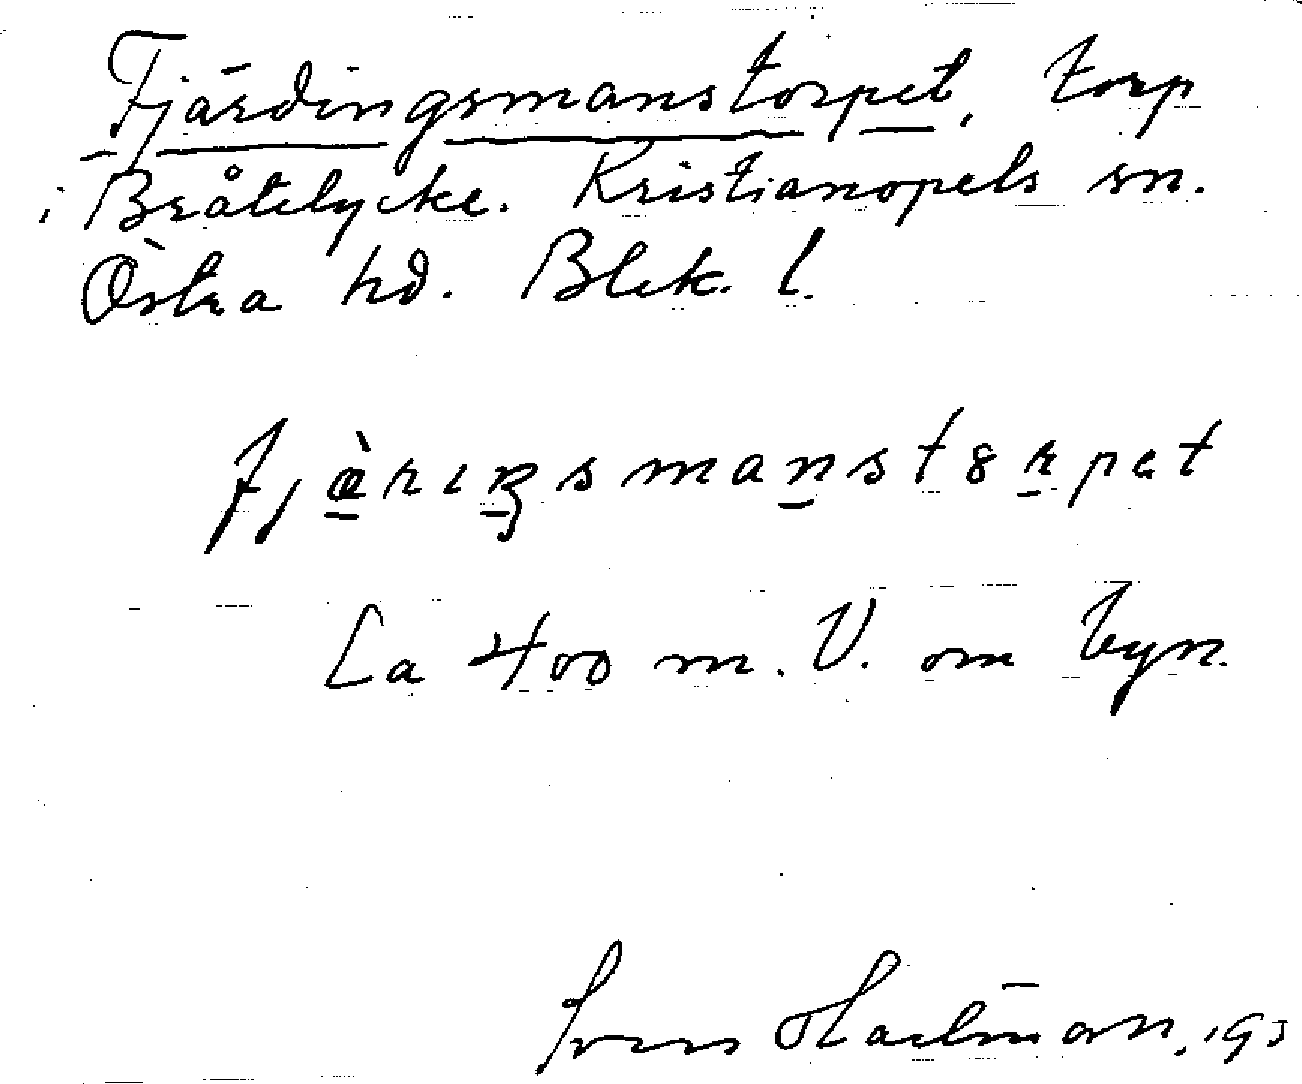 Fjärdingsmanstorpet, torp
i Bråtelycke. Kristianopels sn.
Östra hd. Blek. l.
fjæ̀rıŋsmanstɞrpet
Ca 400 m. V. om byn.
Sven Hallman, 193